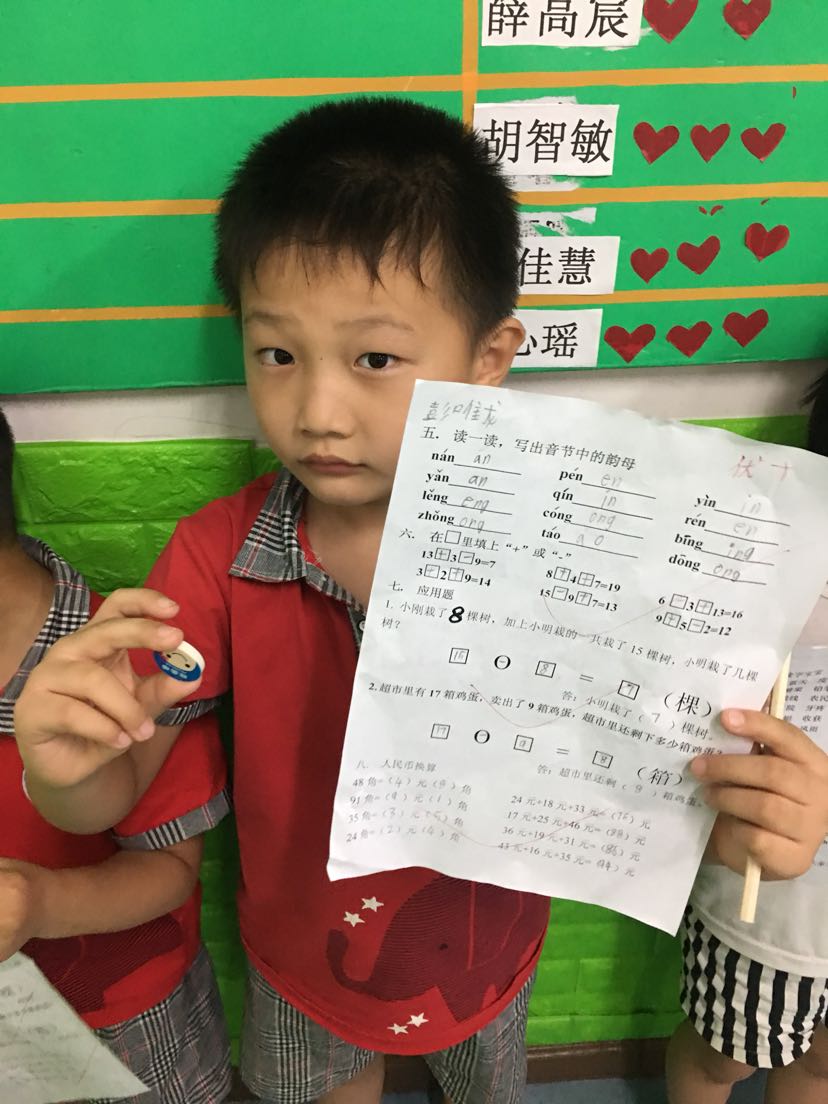 薛高宸
胡智敏
佳慧
心瑶
优+
五. 读一读，写出音节中的韵母
nán an pén en yìn in
yǎn an qín in rén en
lěng eng cóng ong bīng ing
zhǒng ong táo ao dōng ong
六. 在□里填上“+”或“-”
13+3-9=7 8+4+7=19 6-3+13=16
3+2+9=14 15-9+7=13 9+5-2=12
七. 应用题
1. 小刚栽了8棵树，加上小明栽的一共栽了15棵树，小明栽了几棵
树？
15 - 8 = 7 (棵)
答：小明栽了（7）棵树。
2. 超市里有17箱鸡蛋，卖出了9箱鸡蛋，超市里还剩下多少箱鸡蛋？
17 - 9 = 8 (箱)
答：超市里还剩（8）箱鸡蛋。
八. 人民币换算
48角=（4）元（8）角 24元+18元+33元=（75）元
91角=（9）元（1）角 17元+25元+46元=（88）元
35角=（3）元（5）角 36元+19元+31元=（86）元
24角=（2）元（4）角 43元+16元+35元=（94）元